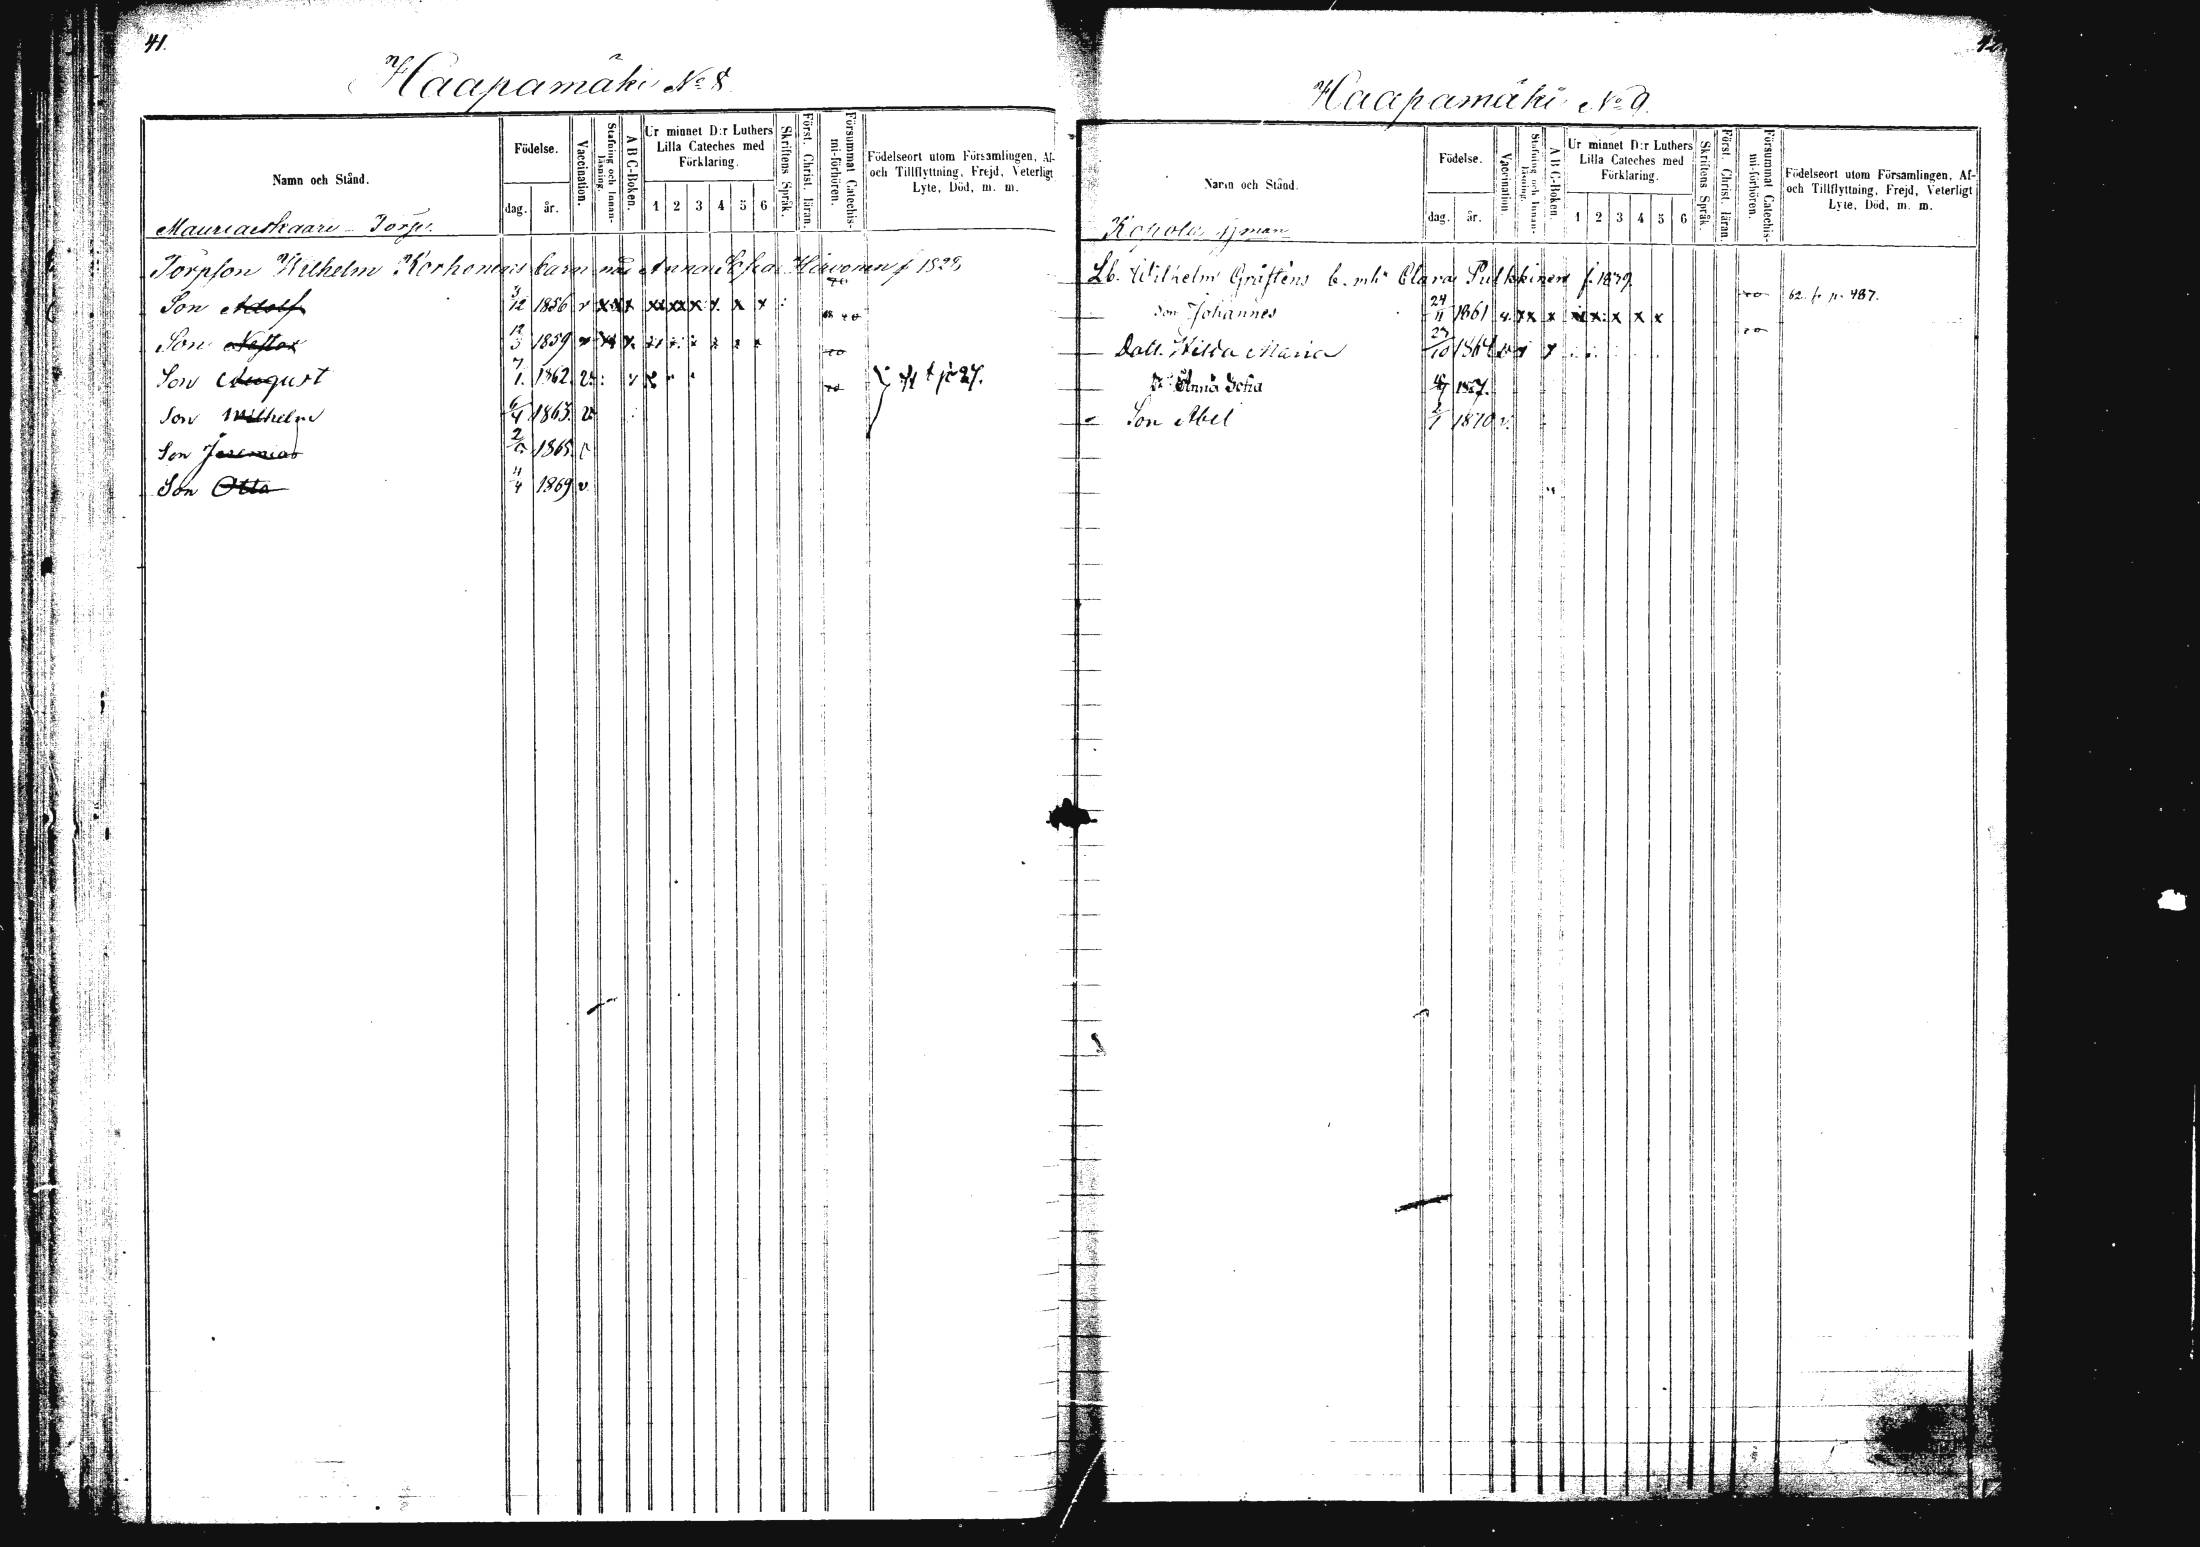 41.
Haapamäki No 8
Namn och Stånd.
Födelse.
dag. år.
Vaccination.
Stafning och Innanläsning.
A B C-Boken.
Ur minnet D:r Luthers Lilla Cateches med Förklaring.
1 2 3 4 5 6
Skriftens Språk.
Först. Christ. läran.
Försummat Catechismi-förhören.
Födelseort utom Församlingen, Af- och Tillflyttning, Frejd, Veterligt Lyte, Död, m. m.
Torp.
Torpson Wilhelm Korhonens barn Anna Sofia Hirvonen f 1828
Son Adolf 3/12 1856 v
Son Nestor 12/3 1859 v
Son August 7/1 1862 v
Son Wilhelm 6/4 1863 v
Son Jeremias 1865
Son Otto 4/4 1869 v
fl t p 27.
Haapamäki No 9.
Namn och Stånd.
Födelse.
dag. år.
Vaccination
Stafning och Innanläsning.
A B C-Boken.
Ur minnet D:r Luthers Lilla Cateches med Förklaring.
1 2 3 4 5 6
Skriftens Språk.
Först. Christ. läran.
Försummat Catechismi-förhören.
Födelseort utom Församlingen, Af- och Tillflyttning, Frejd, Veterligt Lyte, Död, m. m.
Lb. Wilhelm Gråstens b. mh Clara Pulkkinen f. 1839.
Son Johannes 24/11 1861 v. 62. fr p. 487.
Dott. Hilda Maria 23/10 1864
Anna Sofia 1867.
Son Abel 2/1 1870 v.